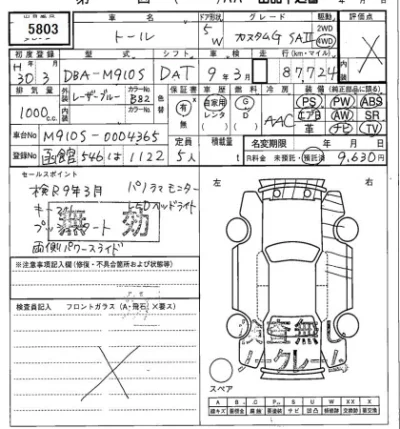 5803
車名 ドア形状 グレード 駆動 評価点
トール 5W カスタムG SAII 2WD 4WD
初度登録 型式 シフト 車検 走行(km・マイル) 内装
H30 3 DBA-M910S DAT 9年3月 87,724
排気量 外装 カラーNo. 色替 保証書 車歴 燃料 冷房 装備(純正部品に限る)
1000cc レーザーブルー B82 カラーNo. 有 無 自家用 レンタ G D AAC PS PW ABS
エアB AW SR
革 ナビ TV
車台No M910S-0004365 定員 積載量 名変期限 年 月 日
登録No 函館 546 は 1122 5人 t R料金 未預託・預託済 9,630円
セールスポイント
検R9年3月 パノラマモニター
キーフリー LEDヘッドライト
プッシュスタート
両側パワースライド
無効
左 右
※注意事項記入欄(修復・不具合箇所および状態等)
検査員記入 フロントガラス(A・飛石 X要ス)
検査無し
ノークレーム
スペア
A B C P S U W X XX